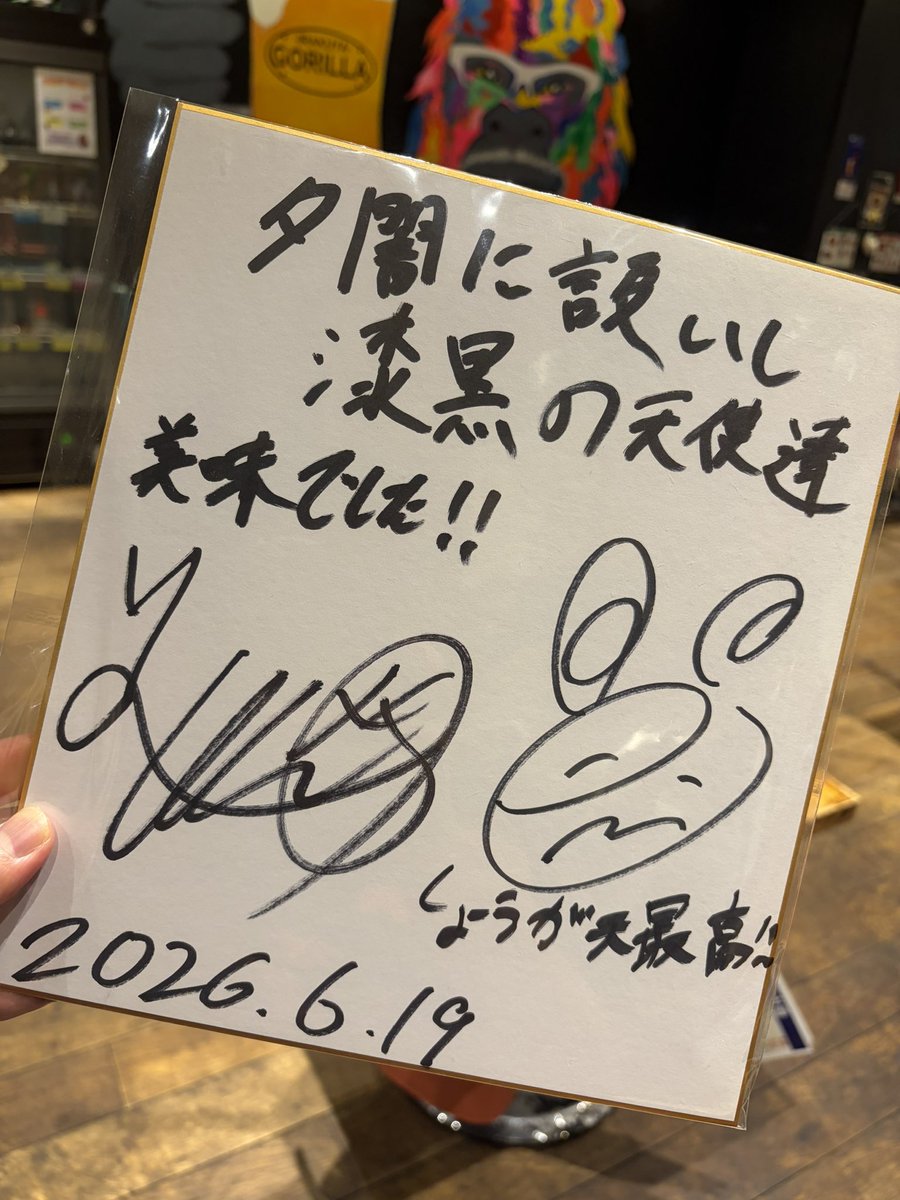 GORILLA
夕闇に誘いし
漆黒の天使達
美味でした!!
しょうが天最高!!
2026.6.19